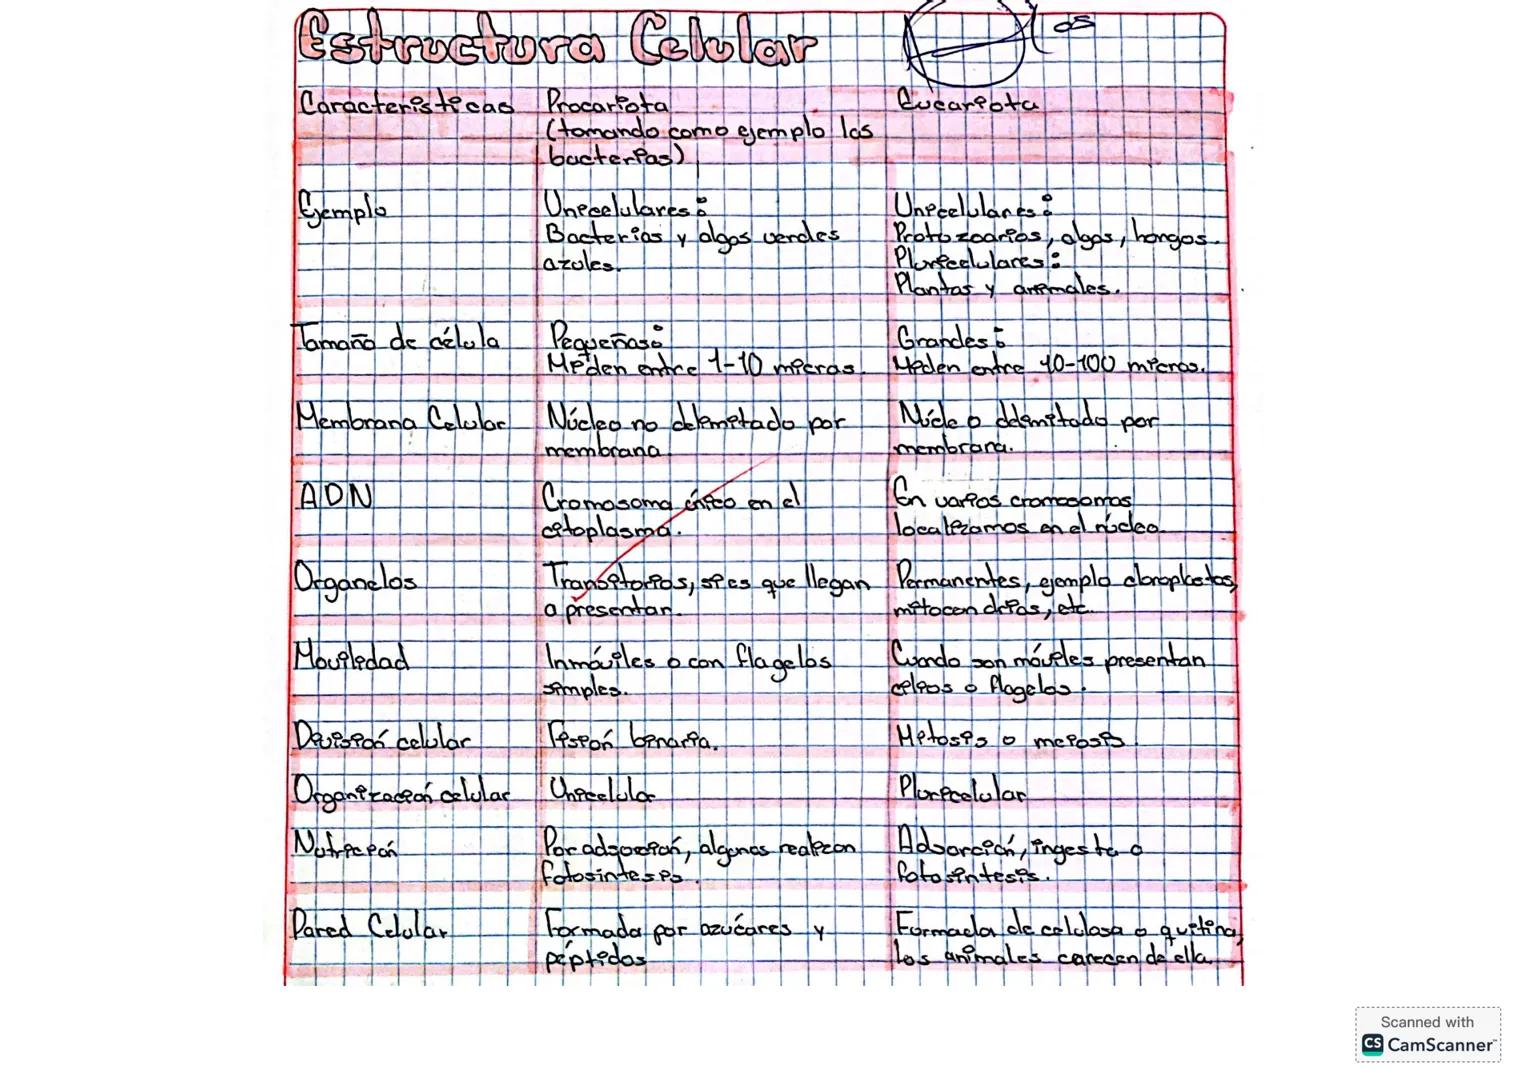 Estructura Celular
Características Procariota Eucariota
(tomando como ejemplo las
bacterias)
Ejemplo Unicelulares: Unicelulares:
Bacterias y algas verdes Protozoarios, algas, hongos.
azules. Pluricelulares:
Plantas y animales.
Tamaño de célula Pequeñas: Grandes:
Miden entre 1-10 micras. Miden entre 10-100 micras.
Membrana Celular Núcleo no delimitado por Núcleo delimitado por
membrana. membrana.
ADN Cromosoma único en el En varios cromosomas
citoplasma. localizamos en el núcleo.
Organelos Transitorios, si es que llegan Permanentes, ejemplo cloroplastos,
a presentar. mitocondrias, etc.
Movilidad Inmóviles o con flagelos Cuando son móviles presentan
simples. cilios o flagelos.
División celular Fisión binaria. Mitosis o meiosis.
Organización celular Unicelular Pluricelular
Nutrición Por adsorción, algunas realizan Adsorción, ingesta o
fotosíntesis. fotosíntesis.
Pared Celular Formada por azúcares y Formada de celulosa o quitina,
péptidos los animales carecen de ella.
Scanned with
CS CamScanner